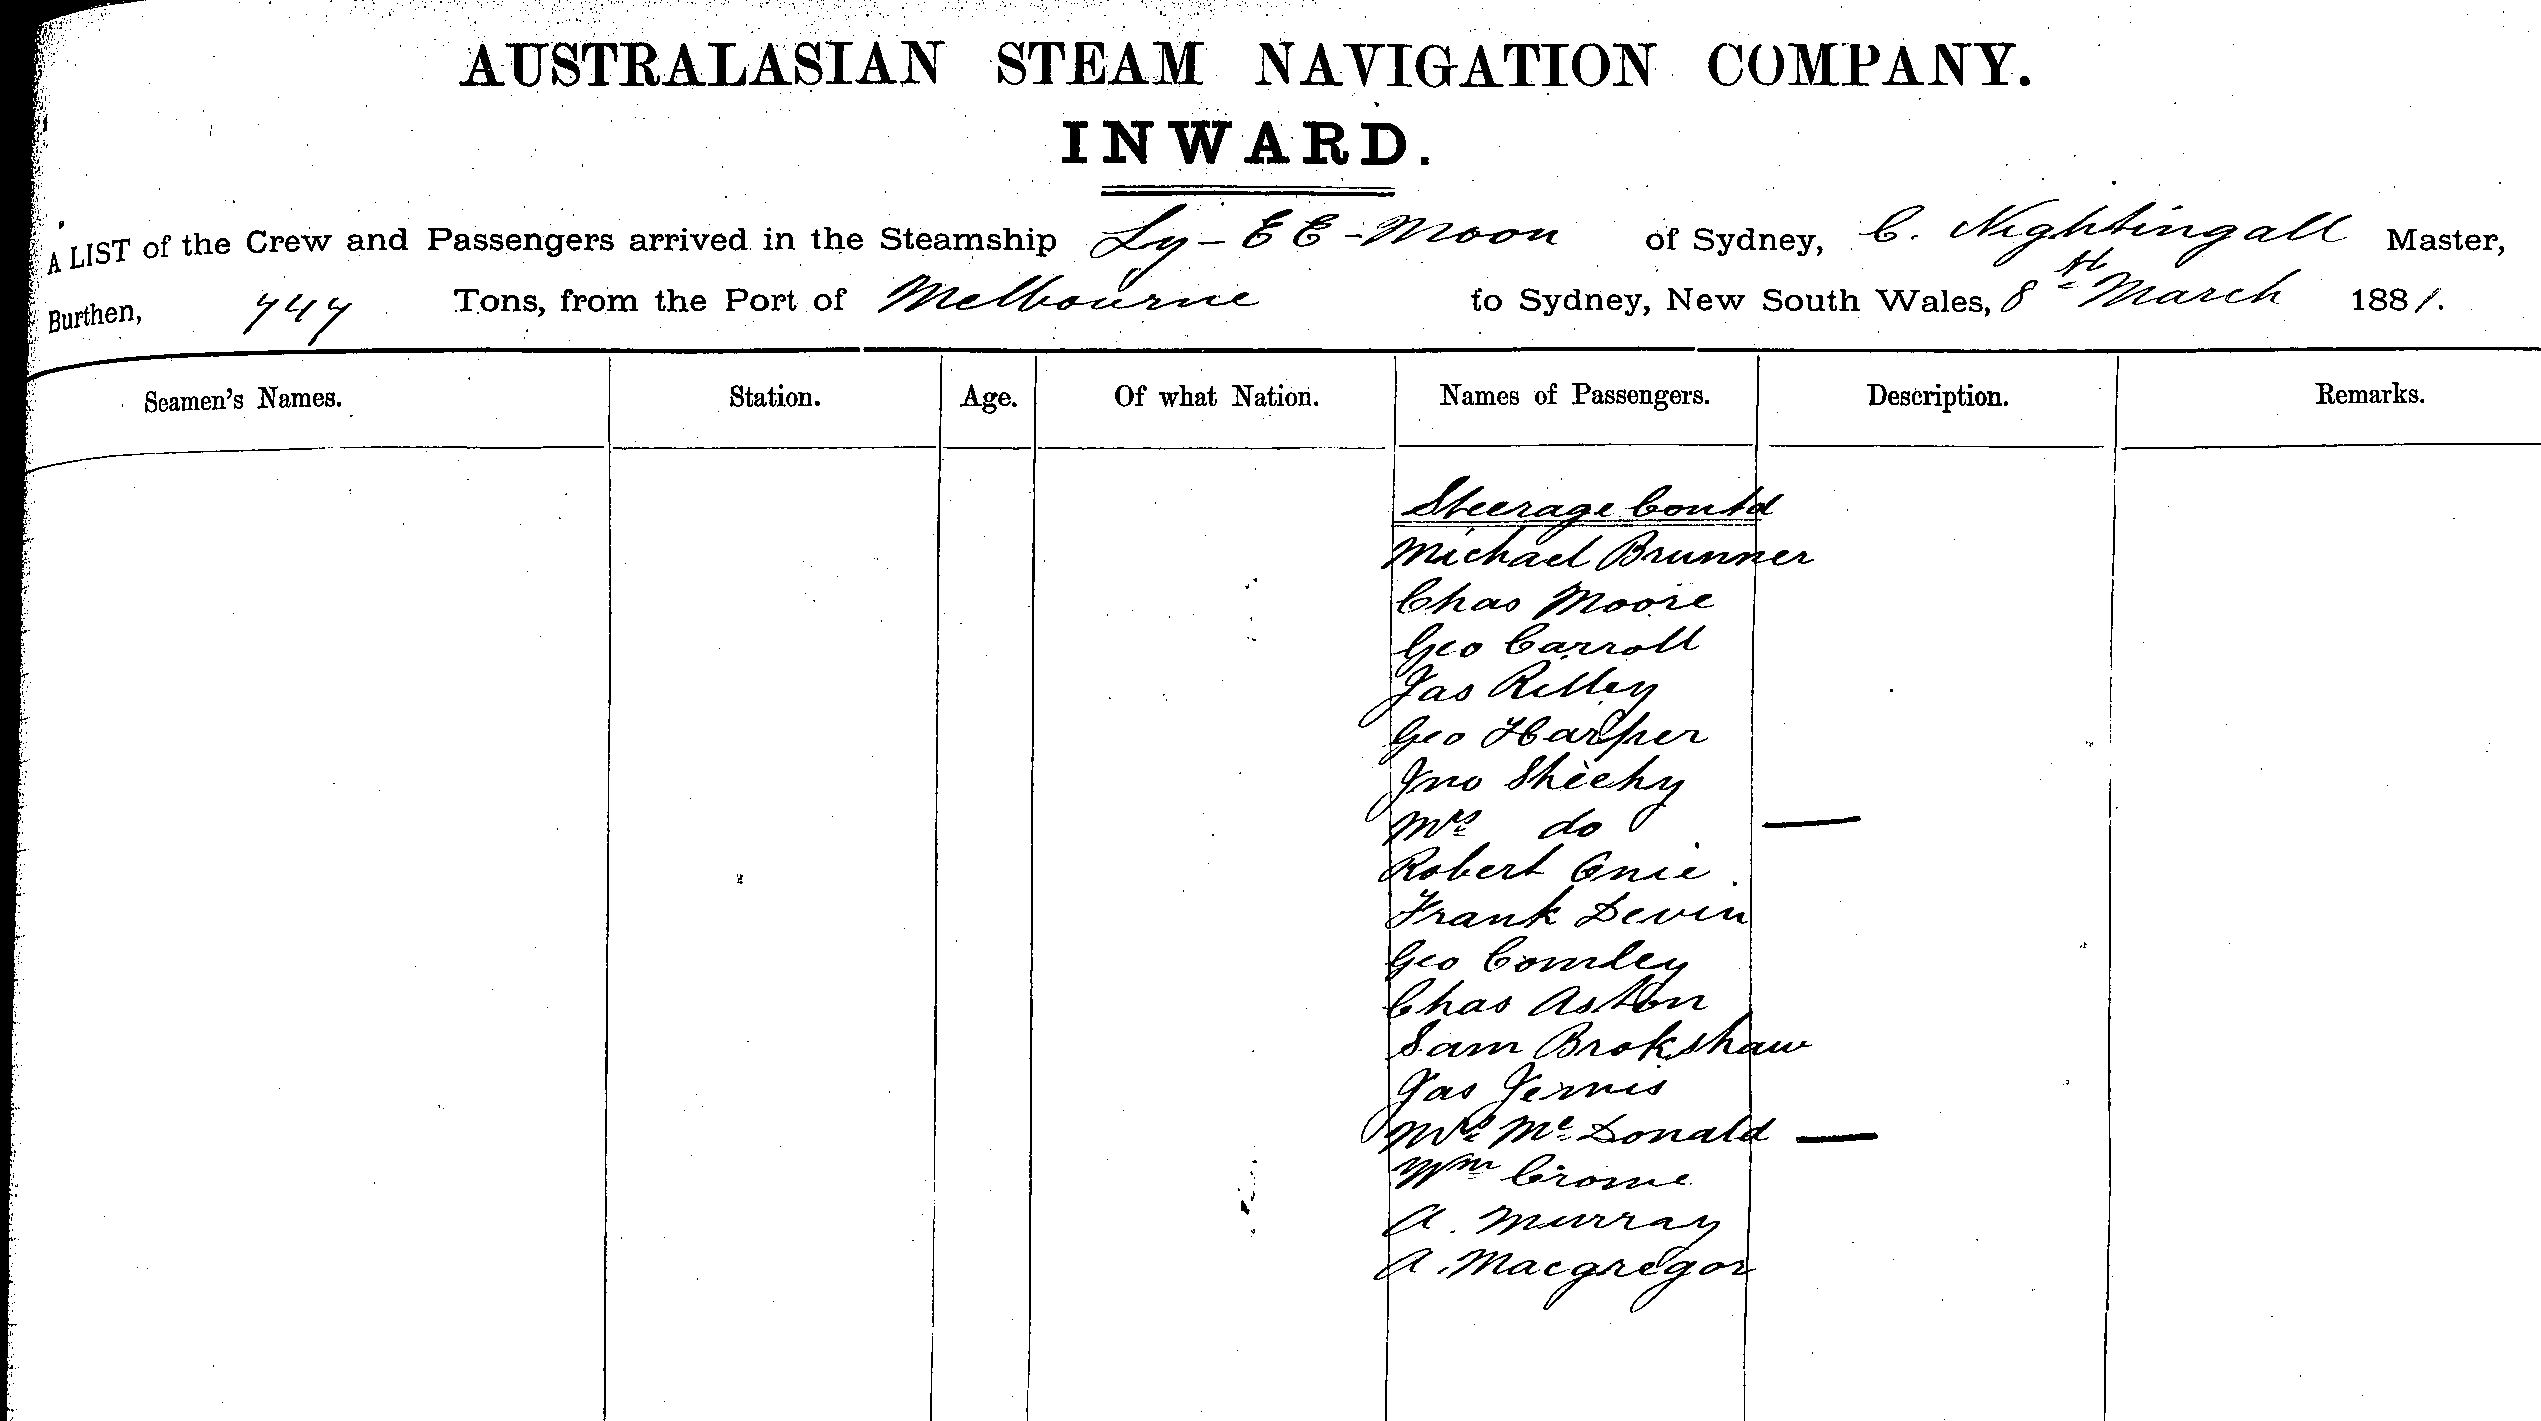 AUSTRALASIAN STEAM NAVIGATION COMPANY.
INWARD.
A LIST of the Crew and Passengers arrived in the Steamship Ly-EE-Moon of Sydney, C. Nightingall Master,
Burthen, 747 Tons, from the Port of Melbourne to Sydney, New South Wales, 8th March 1881.
Seamen's Names. Station. Age. Of what Nation. Names of Passengers. Description. Remarks.
Steerage Contd
Michael Brunner
Chas Moore
Geo Carroll
Jas Rilley
Geo Harper
Jno Sheehy
Mrs do —
Robert
Frank Devin
Geo Comley
Chas Aston
Sam Brokshaw
Jas
Mrs McDonald —
Wm Crome
A. Murray
A. Macgregor